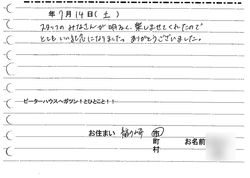 年 7月14日(土)
スタッフのみなさんが明るく楽しませてくれたので
とてもいい気分になりました。ありがとうございました。
ピーターハウスへガツン！とひとこと！！
お住まい 福崎 市
町
村
お名前